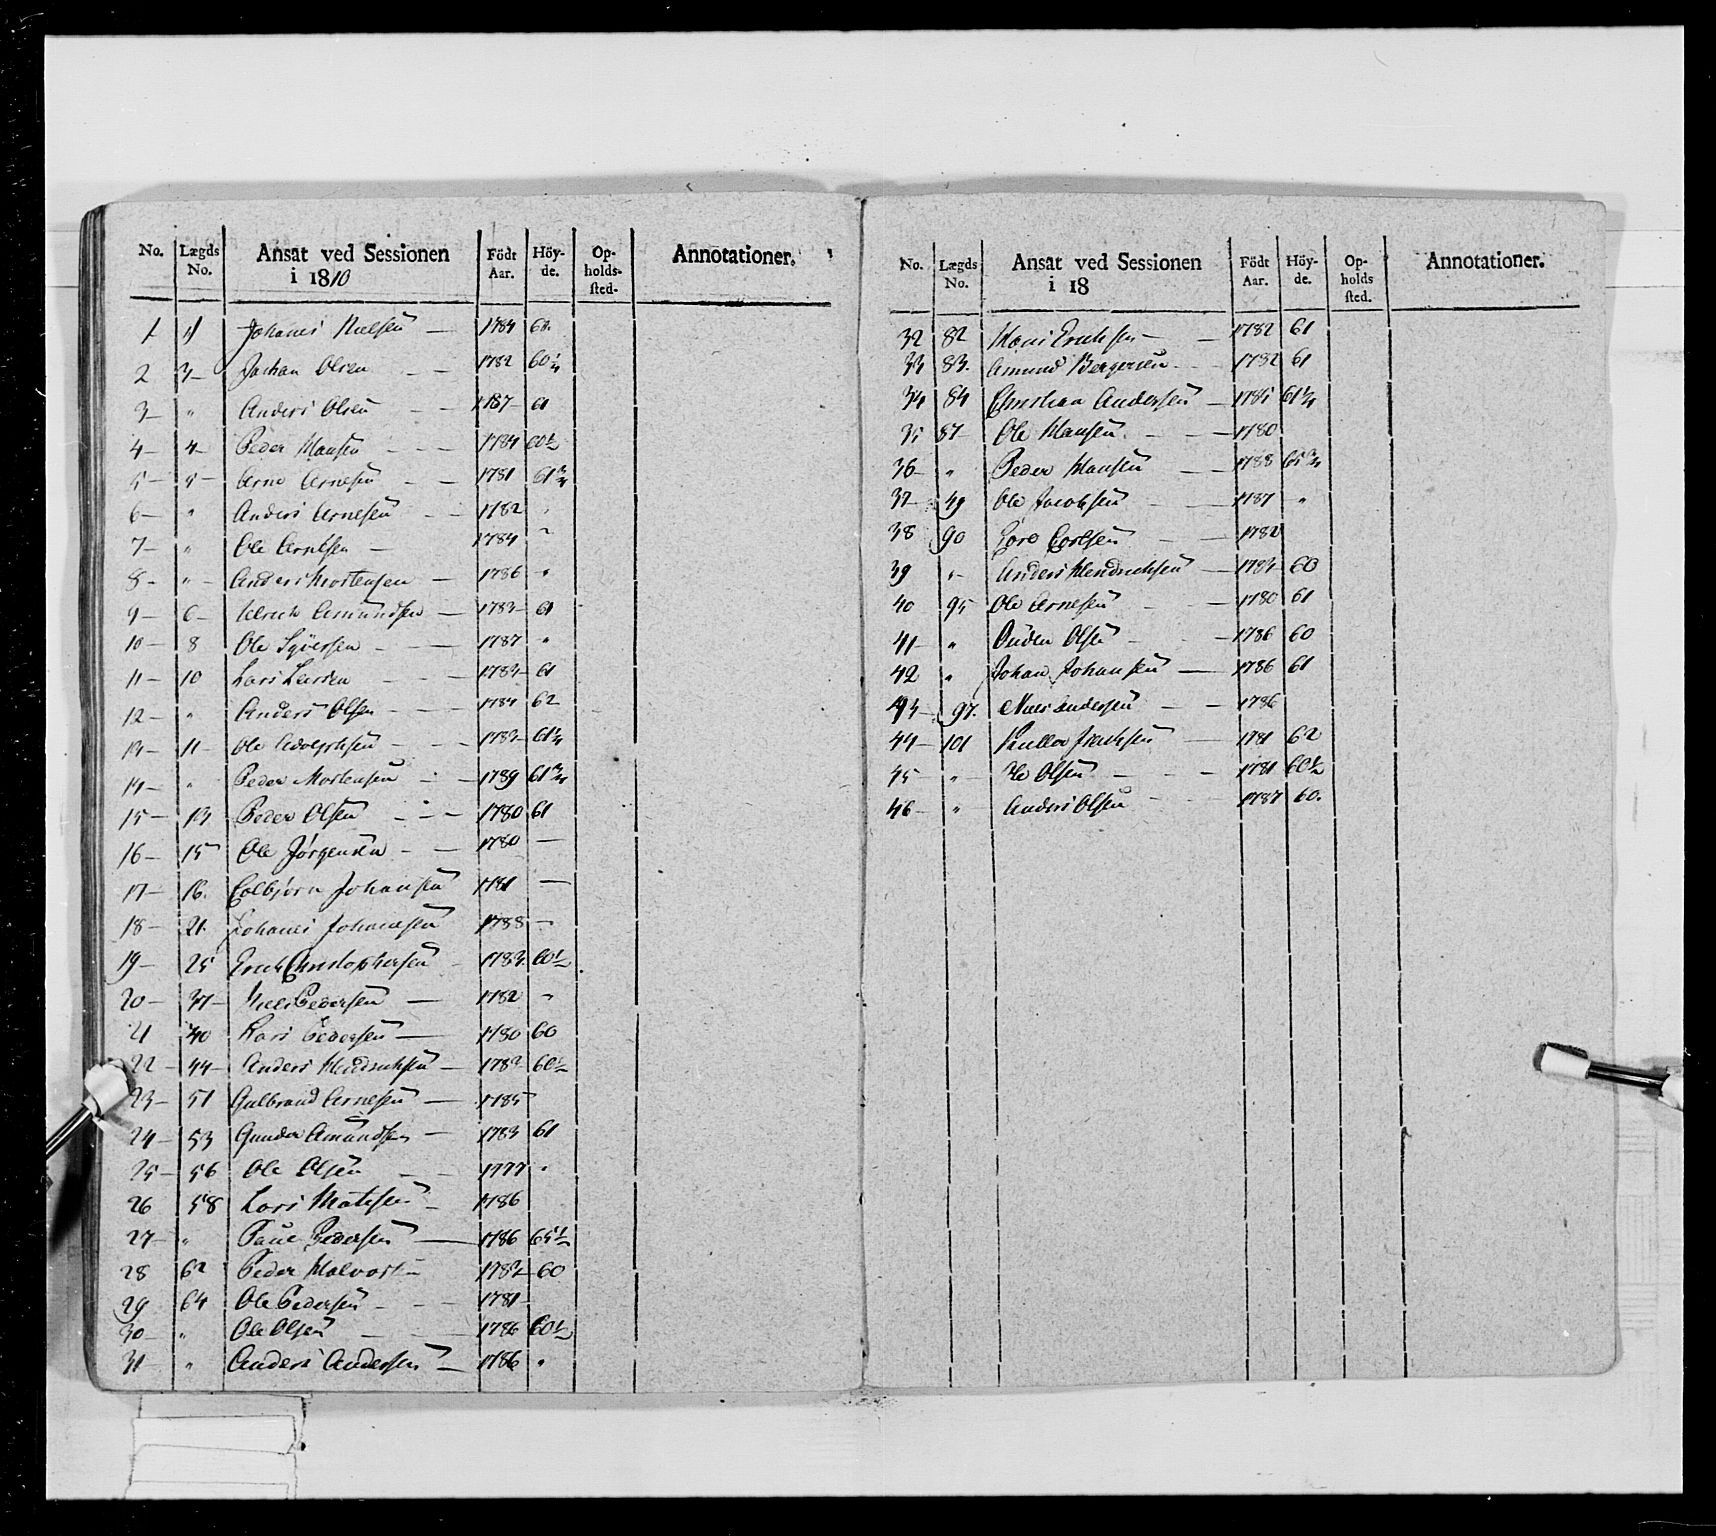 No. Lægds No. Ansat ved Sessionen i 1810 Födt Aar. Höy-de. Op-holds-sted. Annotationer.
1 Johanes Nielsen — 1784
2 3 — Johan Olsen — 1782 60 1/4
3 — " Anders Olsen — 1787 — 61
4 — 4 — Peder Hansen — 1784 60 1/2
5 — 5 — Arne Arnesen — 1781 61 3/4
6 — " Anders Arnesen — 1782 "
7 — " Ole Arnesen — 1784 "
8 — " — Anders Mortensen — 1786 "
9 — 6 — Ulrich Amundsen — 1783 — 61
10 — 8 Ole Syversen — 1787 "
11 — 10 Lars Larsen — 1783 — 61
12 — " Anders Olsen — 1784 62
13 — 11 — Ole Adolphsen — 1783 — 61 1/4
14 — " Peder Mortensen — 1789 61 3/4
15 — 13 Peder Olsen — 1780 61
16 — 15 Ole Jörgensen — 1780 —
17 — 16. Colbjörn Johansen 1781 —
18 — 21. Johanes Johannesen 1788 —
19 — 25 Erich Christophersen 1783. 60 1/2
20 — 37 — Niels Pedersen — 1782 "
21 40 Lars Pedersen — 1780 60
22 — 44 — Anders Hendrichsen — 1782 60 1/2
23 — 51 Gulbrand Arnesen — 1785
24 — 53 Gunder Amundsen — 1783 61
25 — 56 Ole Olsen — 1777 "
26 58 Lars Matisen — 1786
27 — " Paul Pedersen — 1786 65 1/2
28 62 Peder Halvors 1782 — 60
29 64 Ole Pedersen — 1781 —
30 — " Ole Olsen — 1786 60 1/2
31 — " Anders Andersen — 1786 "
No. Lægds No. Ansat ved Sessionen i 18 Födt Aar. Höy-de. Op-holds sted. Annotationer.
32 82 Hans Erichsen — 1782 61
33 83. Amund Bergersen — 1782 61
34 84 Christian Andersen — 1785 61 1/4
35 87 Ole Hansen — 1780
36 — " Peder Hansen — 1788 65 3/4
37 — 49 Ole Jacobsen — 1787 "
38 90 Carlsen — 1782
39 " — Anders Hendrichsen — 1783 — 60
40 95 Ole Arnesen — 1780 61
41 — " Auden Olsen — 1786 60
42 " Johan Johansen — 1786 61
43 — 97. Andersen — 1786
44 — 101 1781 62
45 " Ole Olsen — 1781 60 1/2
46 — " Anders Olsen — 1787 60.